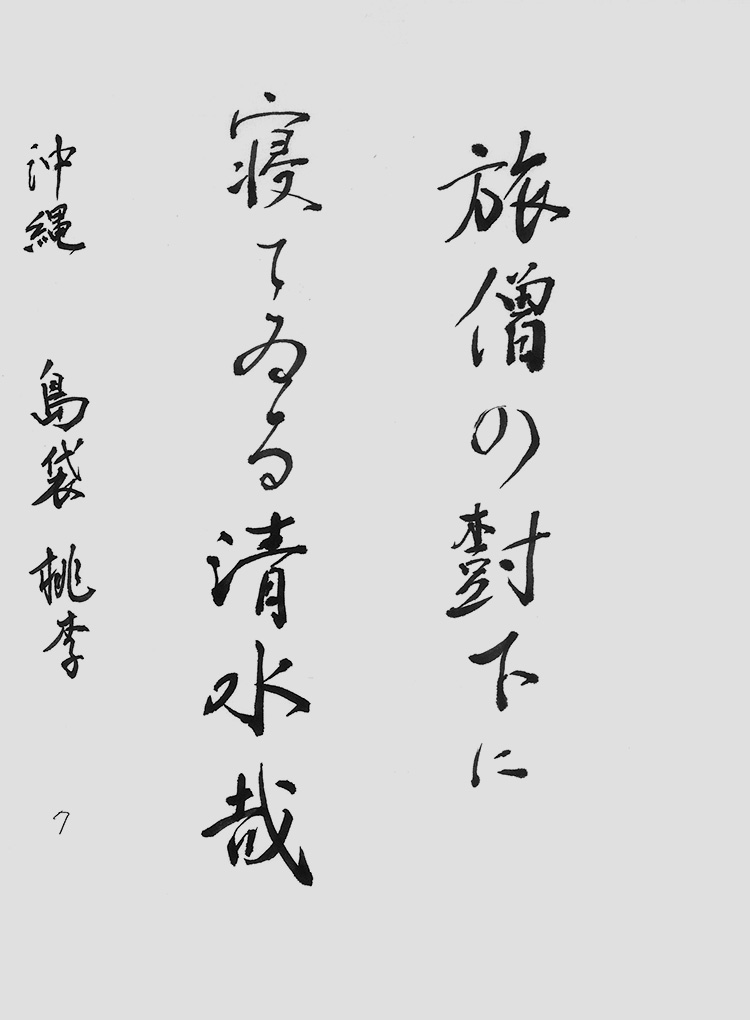 旅僧の樹下に
寝てゐる清水哉
沖縄 島袋 桃李 7